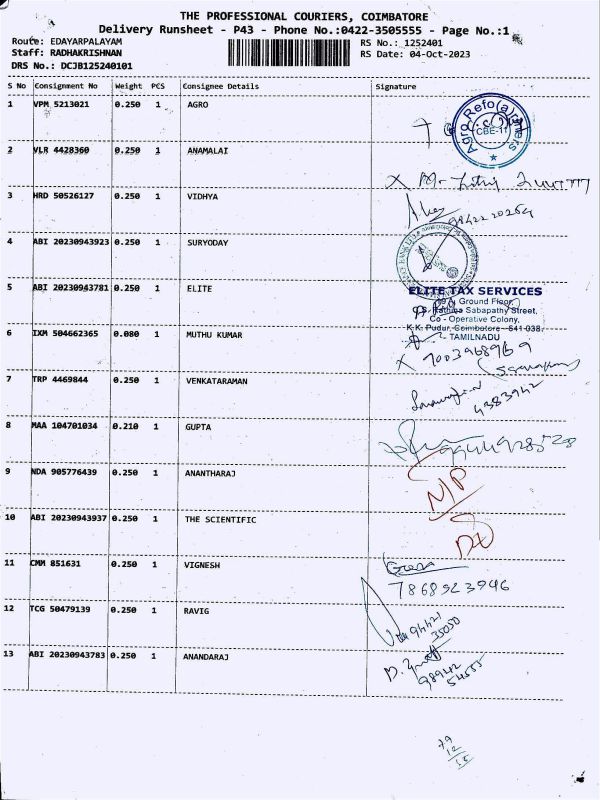 THE PROFESSIONAL COURIERS, COIMBATORE
Delivery Runsheet - P43 - Phone No.:0422-3505555 - Page No.:1
Route: EDAYARPALAYAM RS No.: 1252401
Staff: RADHAKRISHNAN RS Date: 04-Oct-2023
DRS No.: DCJB125240101
S No Consignment No Weight PCS Consignee Details Signature
1 VPM 5213021 0.250 1 AGRO
CBE-11
2 VLR 4428360 0.250 1 ANAMALAI
3 HRD 50526127 0.250 1 VIDHYA
9842220264
4 ABI 20230943923 0.250 1 SURYODAY
5 ABI 20230943781 0.250 1 ELITE
ELITE TAX SERVICES
Ground Floor,
Rathina Sabapathy Street,
Co - Operative Colony,
K.K. Pudur, Coimbatore - 641 038.
TAMILNADU
6 IXM 504662365 0.080 1 MUTHU KUMAR
7 TRP 4469844 0.250 1 VENKATARAMAN
4383942
8 MAA 104701034 0.210 1 GUPTA
9 NDA 905776439 0.250 1 ANANTHARAJ
N/P
10 ABI 20230943937 0.250 1 THE SCIENTIFIC
11 CMM 851631 0.250 1 VIGNESH
7868923946
12 TCG 50479139 0.250 1 RAVIG
94421
35050
13 ABI 20230943783 0.250 1 ANANDARAJ
98942
54555